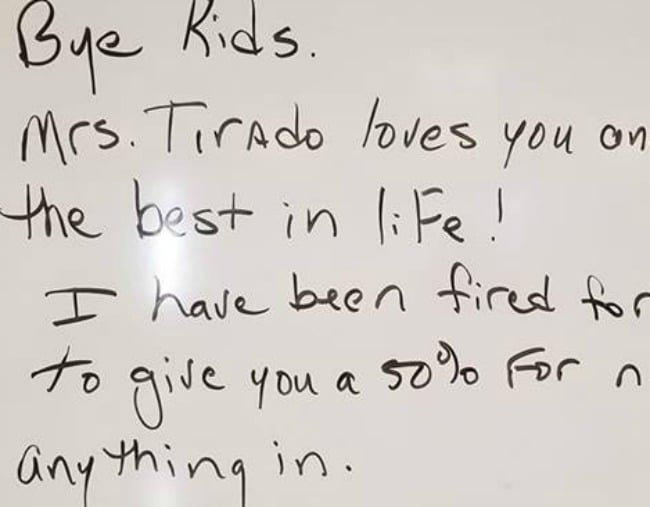 Bye Kids.
Mrs. Tirado loves you an
the best in life!
I have been fired for
to give you a 50% for n
anything in.